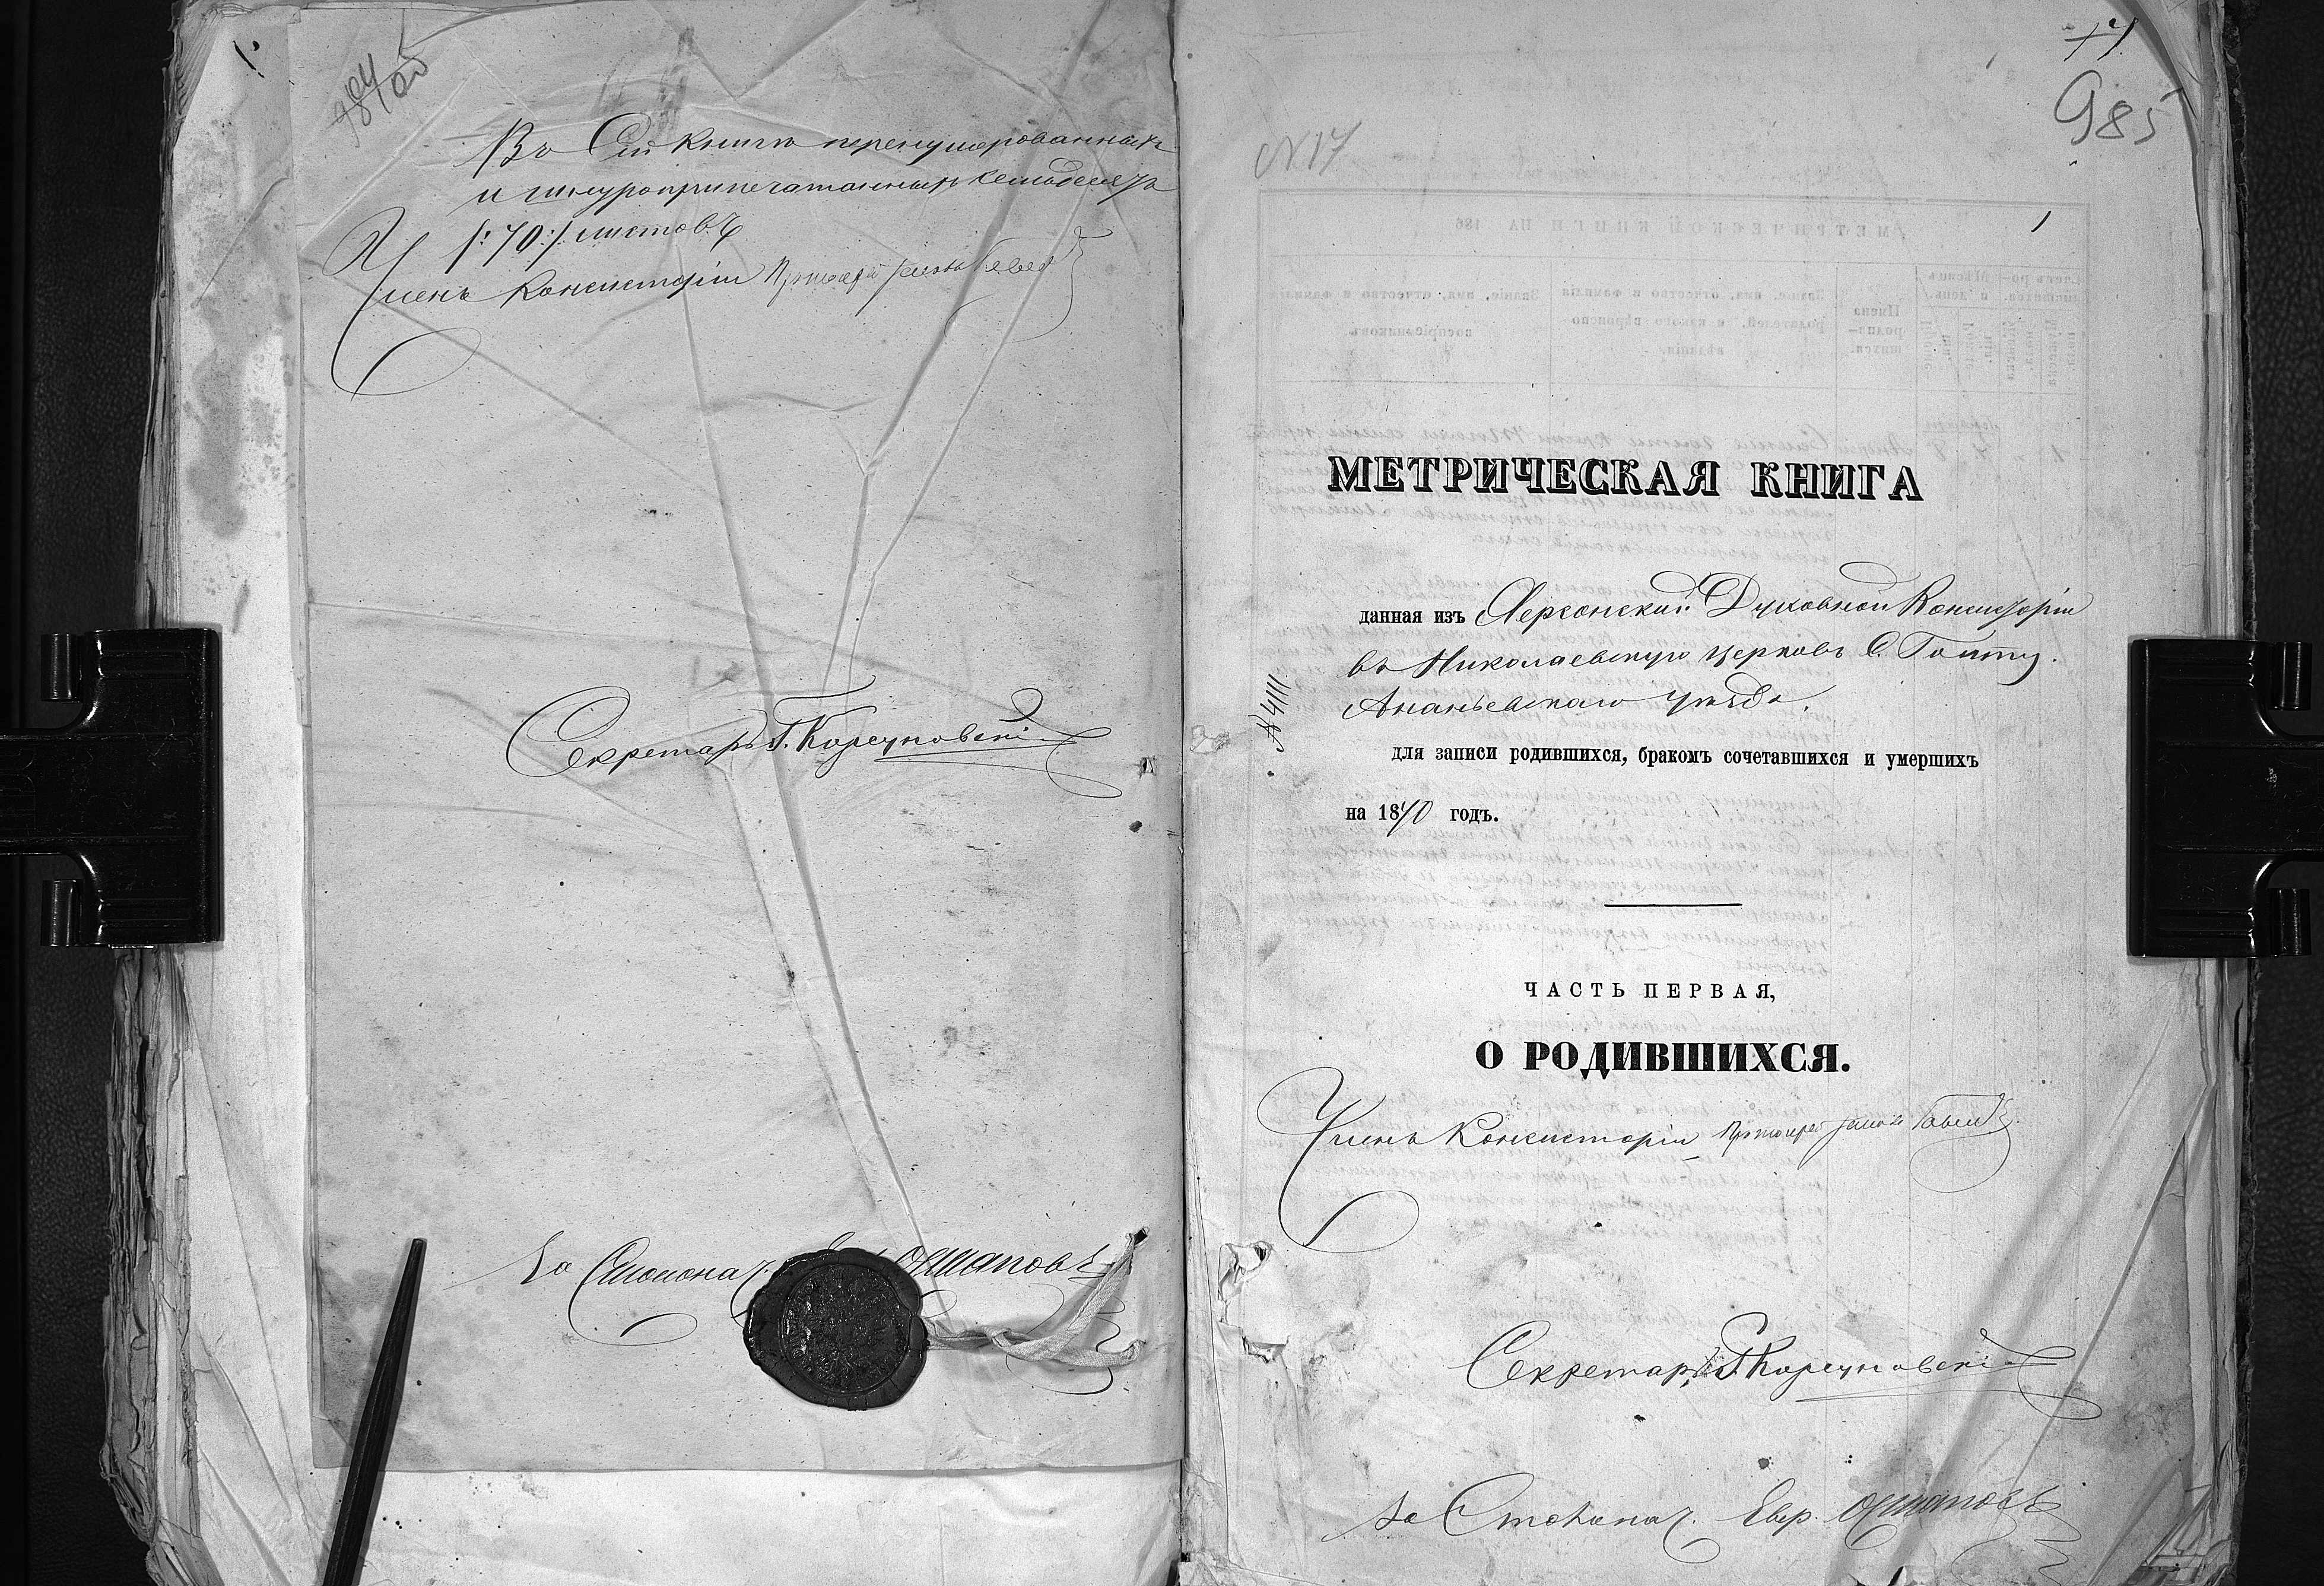 Въ Сей книгѣ перенумерованныхъ
и шнуроприпечатанныхъ семьдесятъ
/:70:/ листовъ
Членъ Консисторіи Протоіерей
Секретарь Г. Корсуновскій
За Столонач. Остаповъ
985
N 17
1
МЕТРИЧЕСКАЯ КНИГА
данная изъ Херсонской Духовной Консисторіи
въ Николаевскую церковь С. Голту.
Ананьевскаго уѣзда.
для записи родившихся, бракомъ сочетавшихся и умершихъ
на 1870 годъ.
ЧАСТЬ ПЕРВАЯ,
О РОДИВШИХСЯ.
Членъ Консисторіи Протоіерей
Секретарь Г. Корсуновскій
За Столонач. Евр. Остаповъ